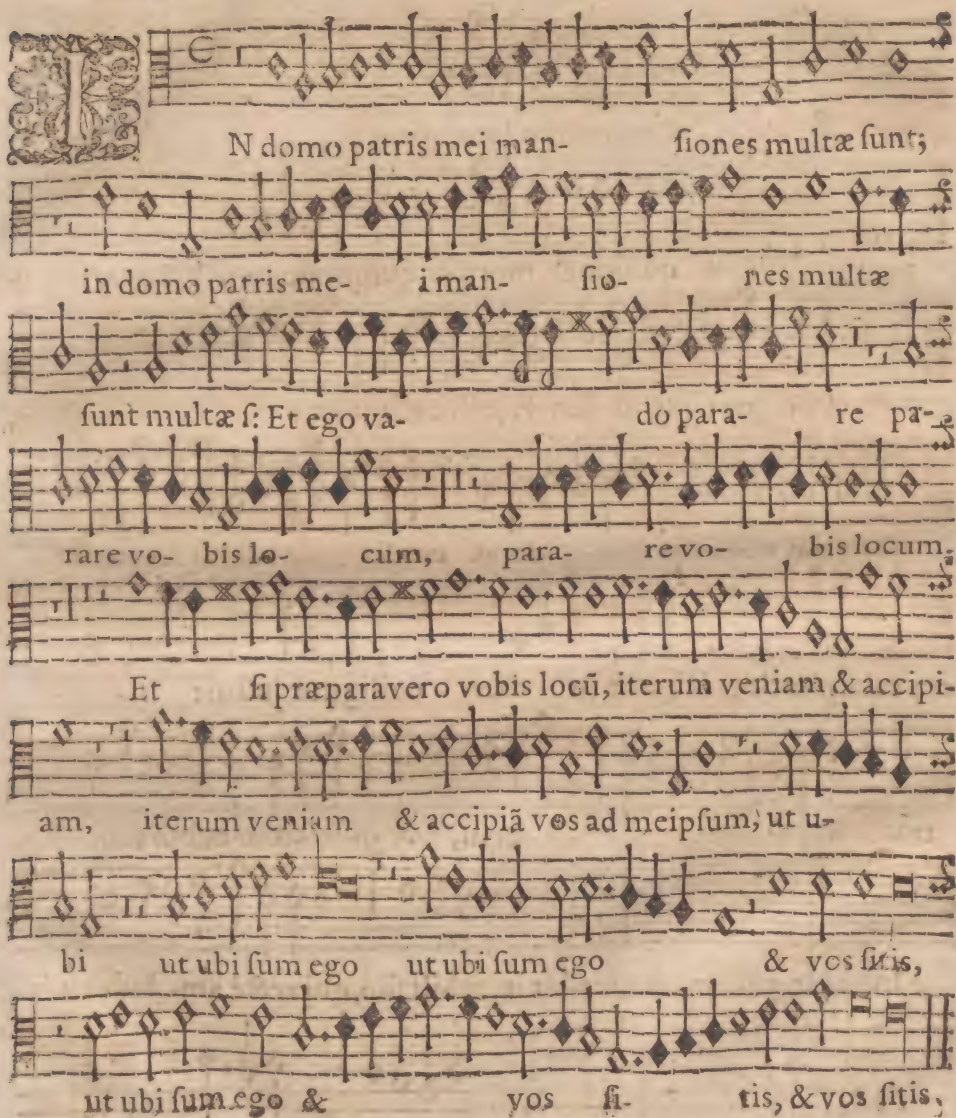 IN domo patris mei man- ſiones multæ ſunt;
in domo patris me- i man- ſio- nes multæ
ſunt multæ ſ: Et ego va- do para- re pa-
rare vo- bis lo- cum, para- re vo- bis locum.
Et ſi præparavero vobis locū, iterum veniam & accipi-
am, iterum veniam & accipiã vos ad meipſum; ut u-
bi ut ubi ſum ego ut ubi ſum ego & vos ſitis,
ut ubi ſum ego & vos ſi- tis, & vos ſitis,